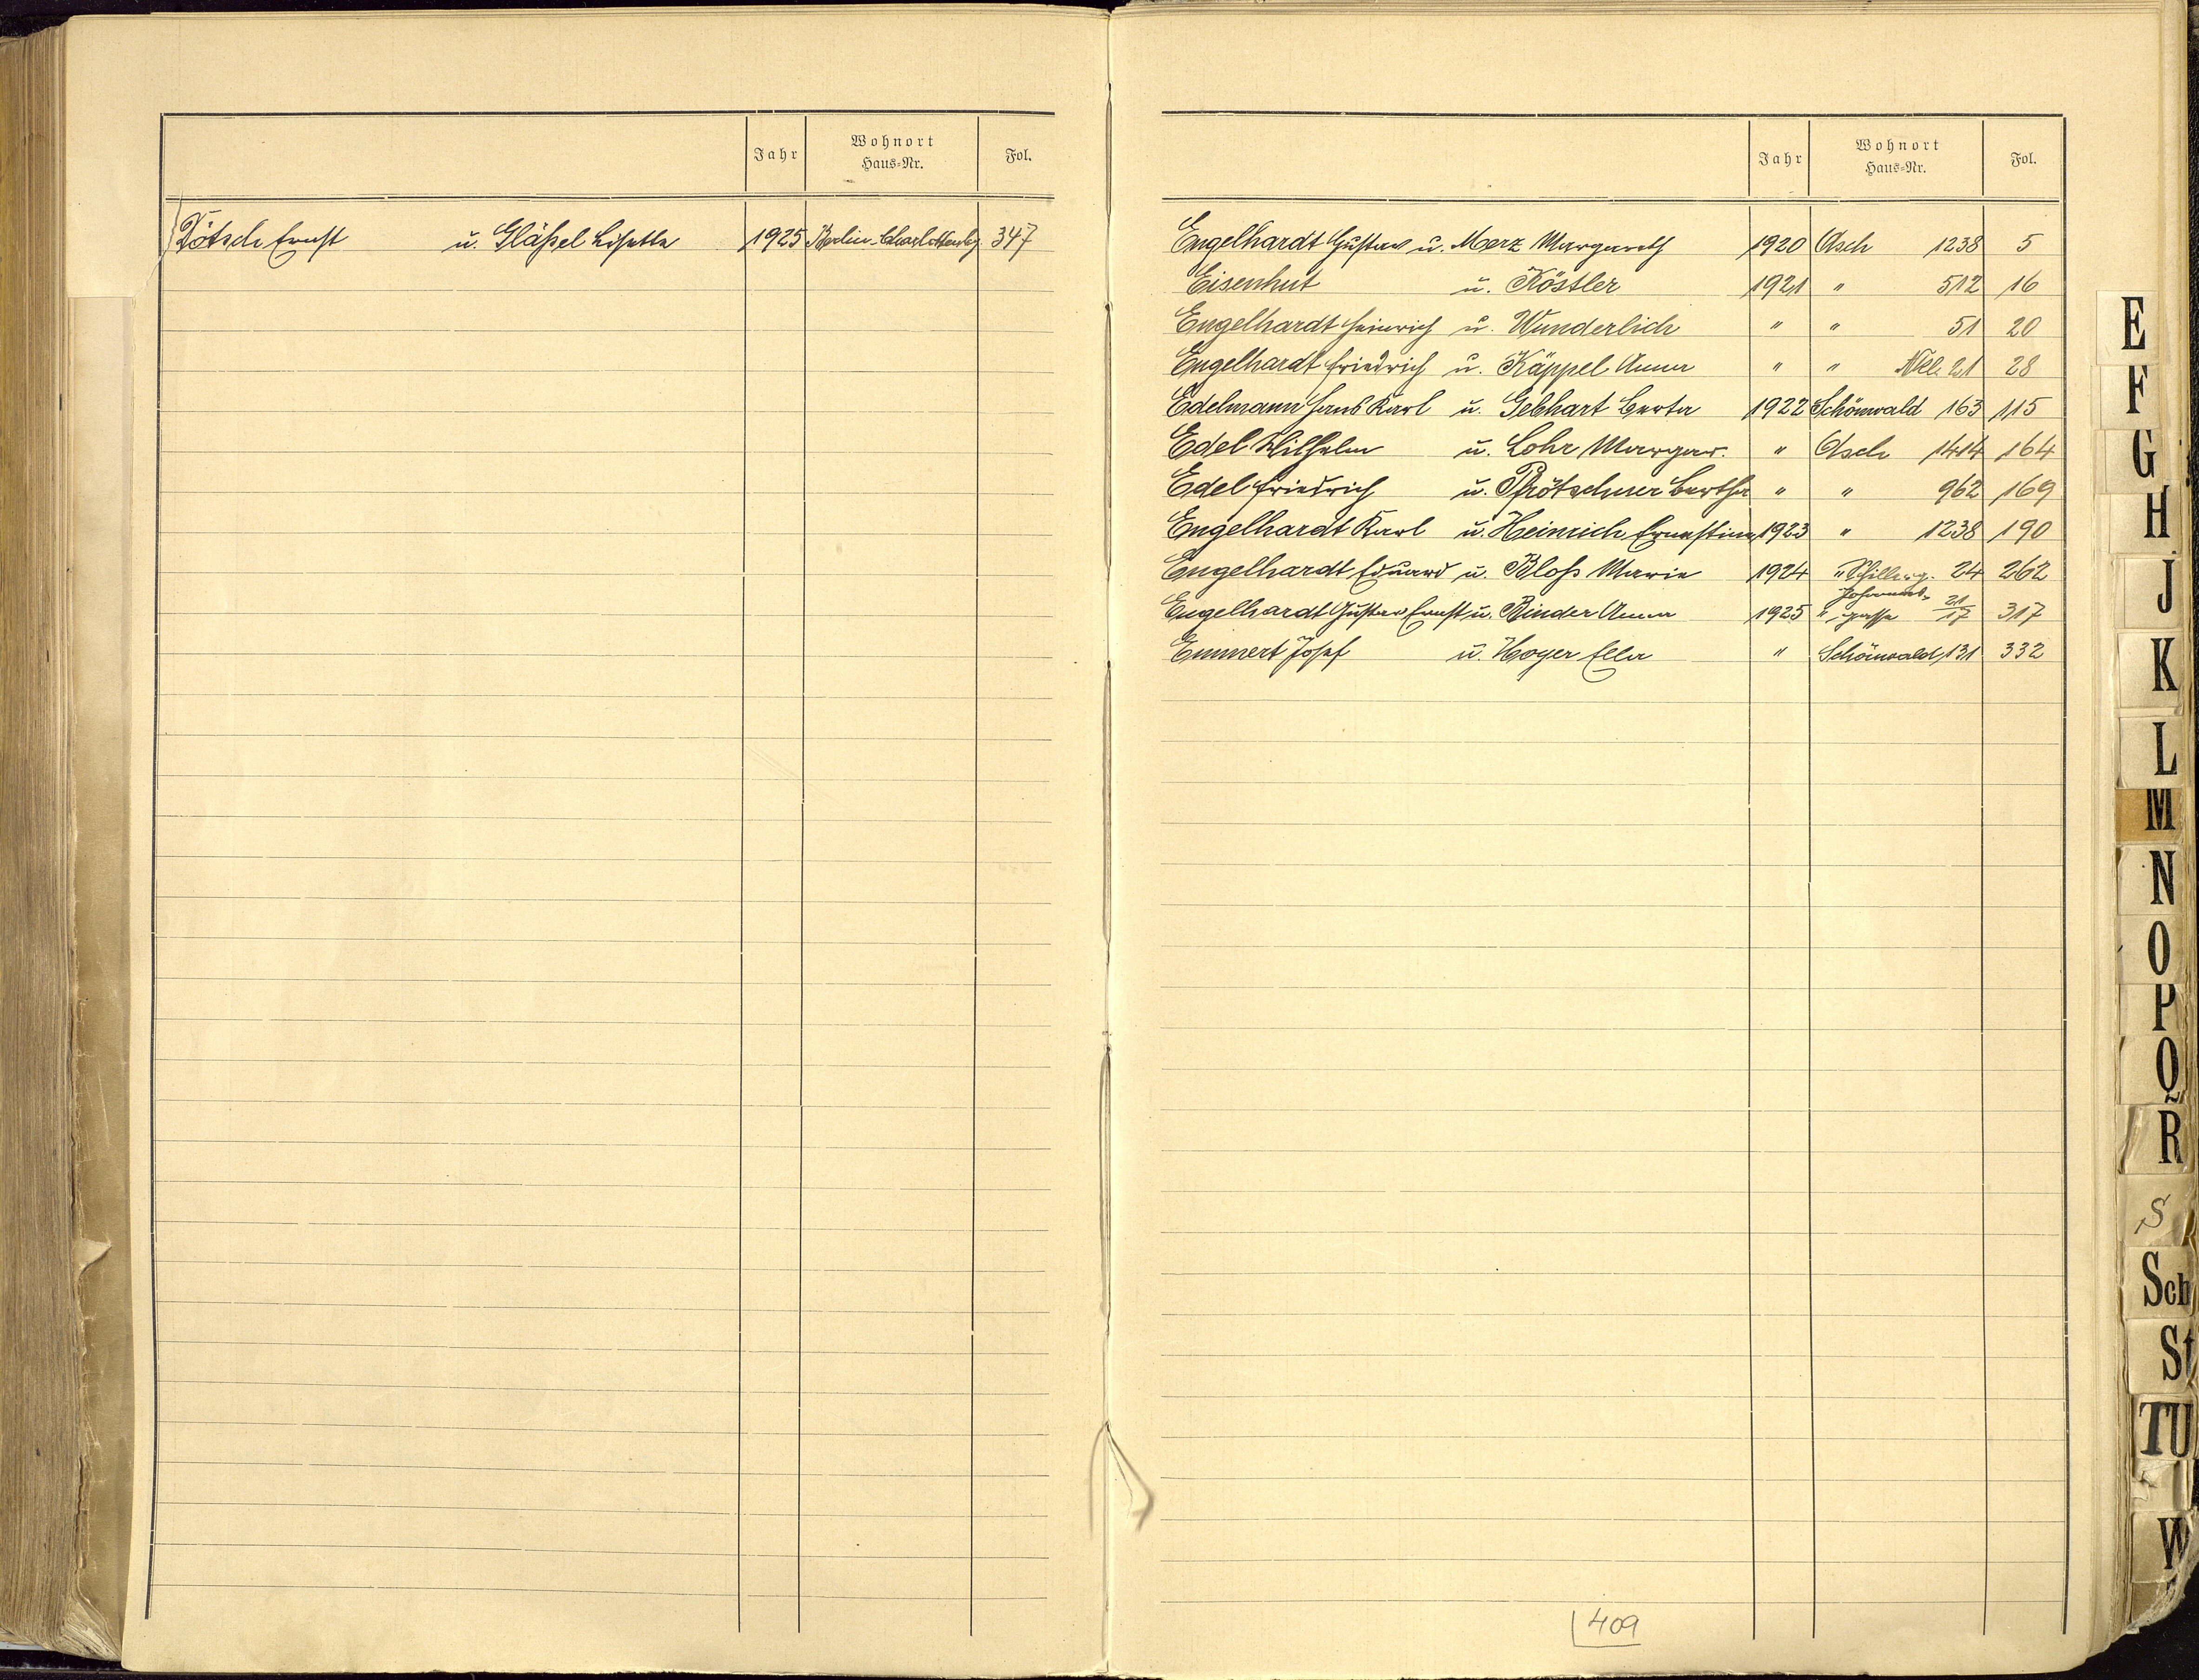 Jahr Wohnort Haus=Nr. Fol.
Dötsch Ernst u. Gläßel Lisette 1925 Berlin-Charlottenbg. 347
Jahr Wohnort Haus=Nr. Fol.
Engelhardt Gustav u. Merz Margareth 1920 Asch 1238 5
Eisenhut u. Köstler 1921 " 512 16
Engelhardt Heinrich u. Wunderlich " " 51 20
Engelhardt Friedrich u. Käppel Anna " " 28
Edelmann Hans Karl u. Gebhart Berta 1922 Schönwald 163 115
Edel Wilhelm u. Lohr Margar. " Asch 1414 164
Edel Friedrich u. Prötschner Bertha " " 962 169
Engelhardt Karl u. Heinrich Ernestine 1923 " 1238 190
Engelhardt Eduard u. Bloß Marie 1924 " Schillerg. 24 262
Engelhardt Gustav Ernst u. Binder Anna 1925 " Johannes-gasse 21/17 317
Emmert Josef u. Hoyer Ella " Schönwald 131 332
409
E
F
G
H
J
K
L
M
N
O
P
Q
R
S
Sch
St
TU
W